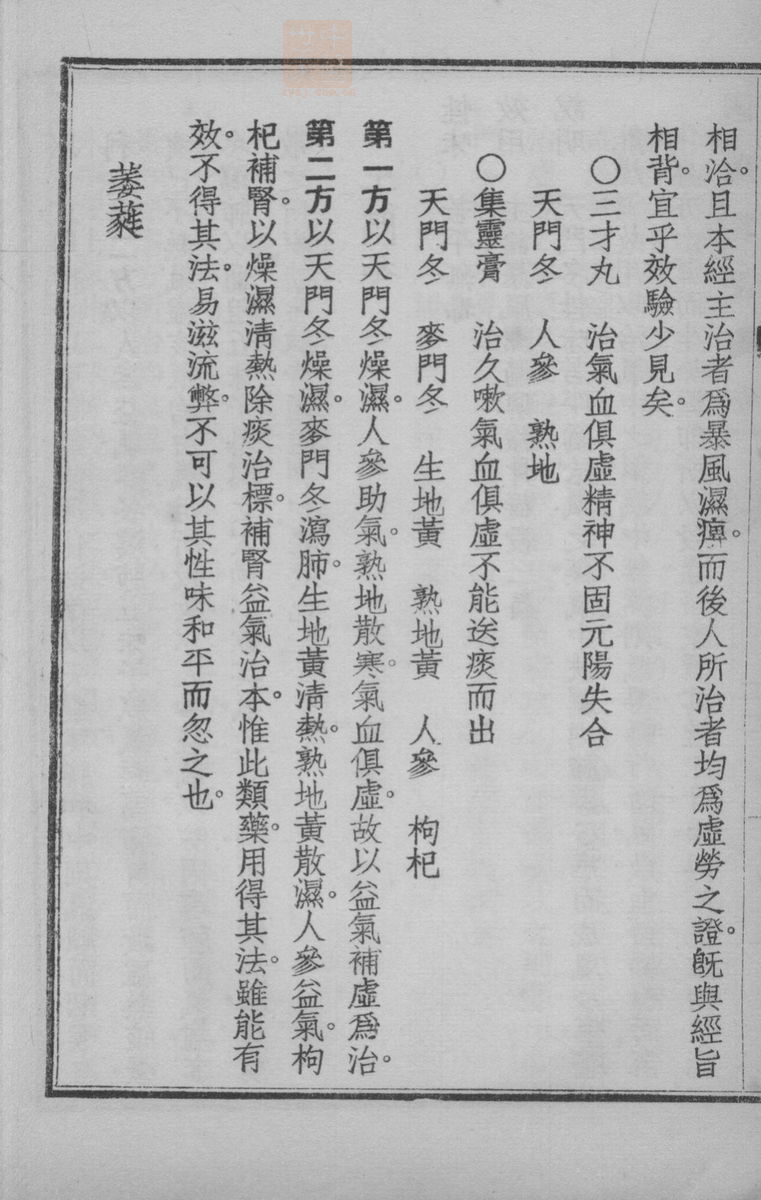 相洽。且本經主治者爲暴風濕痹。而後人所治者均爲虛勞之證。旣與經旨
相背。宜乎效驗少見矣。
〇三才丸　治氣血俱虛精神不固元陽失合
天門冬　人參　熟地
〇集靈膏　治久嗽氣血俱虛不能送痰而出
天門冬　麥門冬　生地黃　熟地黃　人參　枸杞
第一方以天門冬燥濕。人參助氣。熟地散寒。氣血俱虛。故以益氣補虛爲治。
第二方以天門冬燥濕。麥門冬瀉肺。生地黃清熱。熟地黃散濕。人參益氣。枸
杞補腎。以燥濕清熱除痰治標。補腎益氣治本。惟此類藥。用得其法。雖能有
效。不得其法。易滋流弊。不可以其性味和平而忽之也。
萎蕤